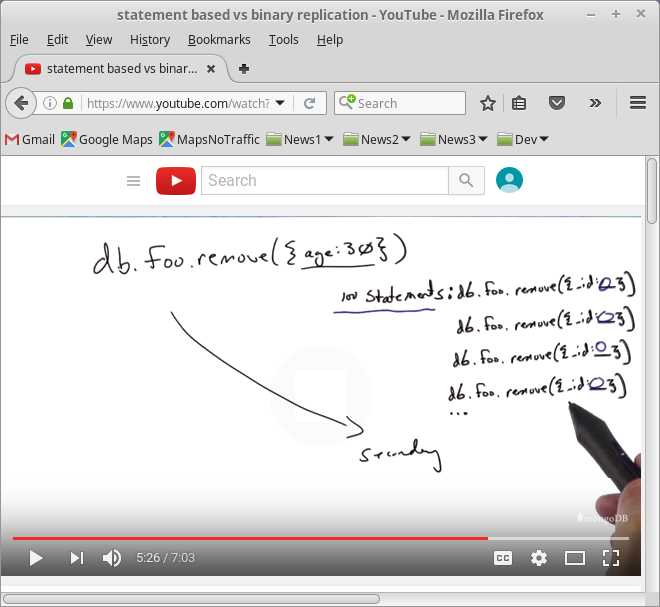 statement based vs binary replication - YouTube - Mozilla Firefox
File Edit View History Bookmarks Tools Help
statement based vs binar...
https://www.youtube.com/watch? Search
Gmail Google Maps MapsNoTraffic News1 News2 News3 Dev
Search
db.foo.remove({age:30})
100 statements: db.foo.remove({_id:0})
db.foo.remove({_id:0})
db.foo.remove({_id:0})
db.foo.remove({_id:0})
...
secondary
mongoDB
5:26 / 7:03 CC